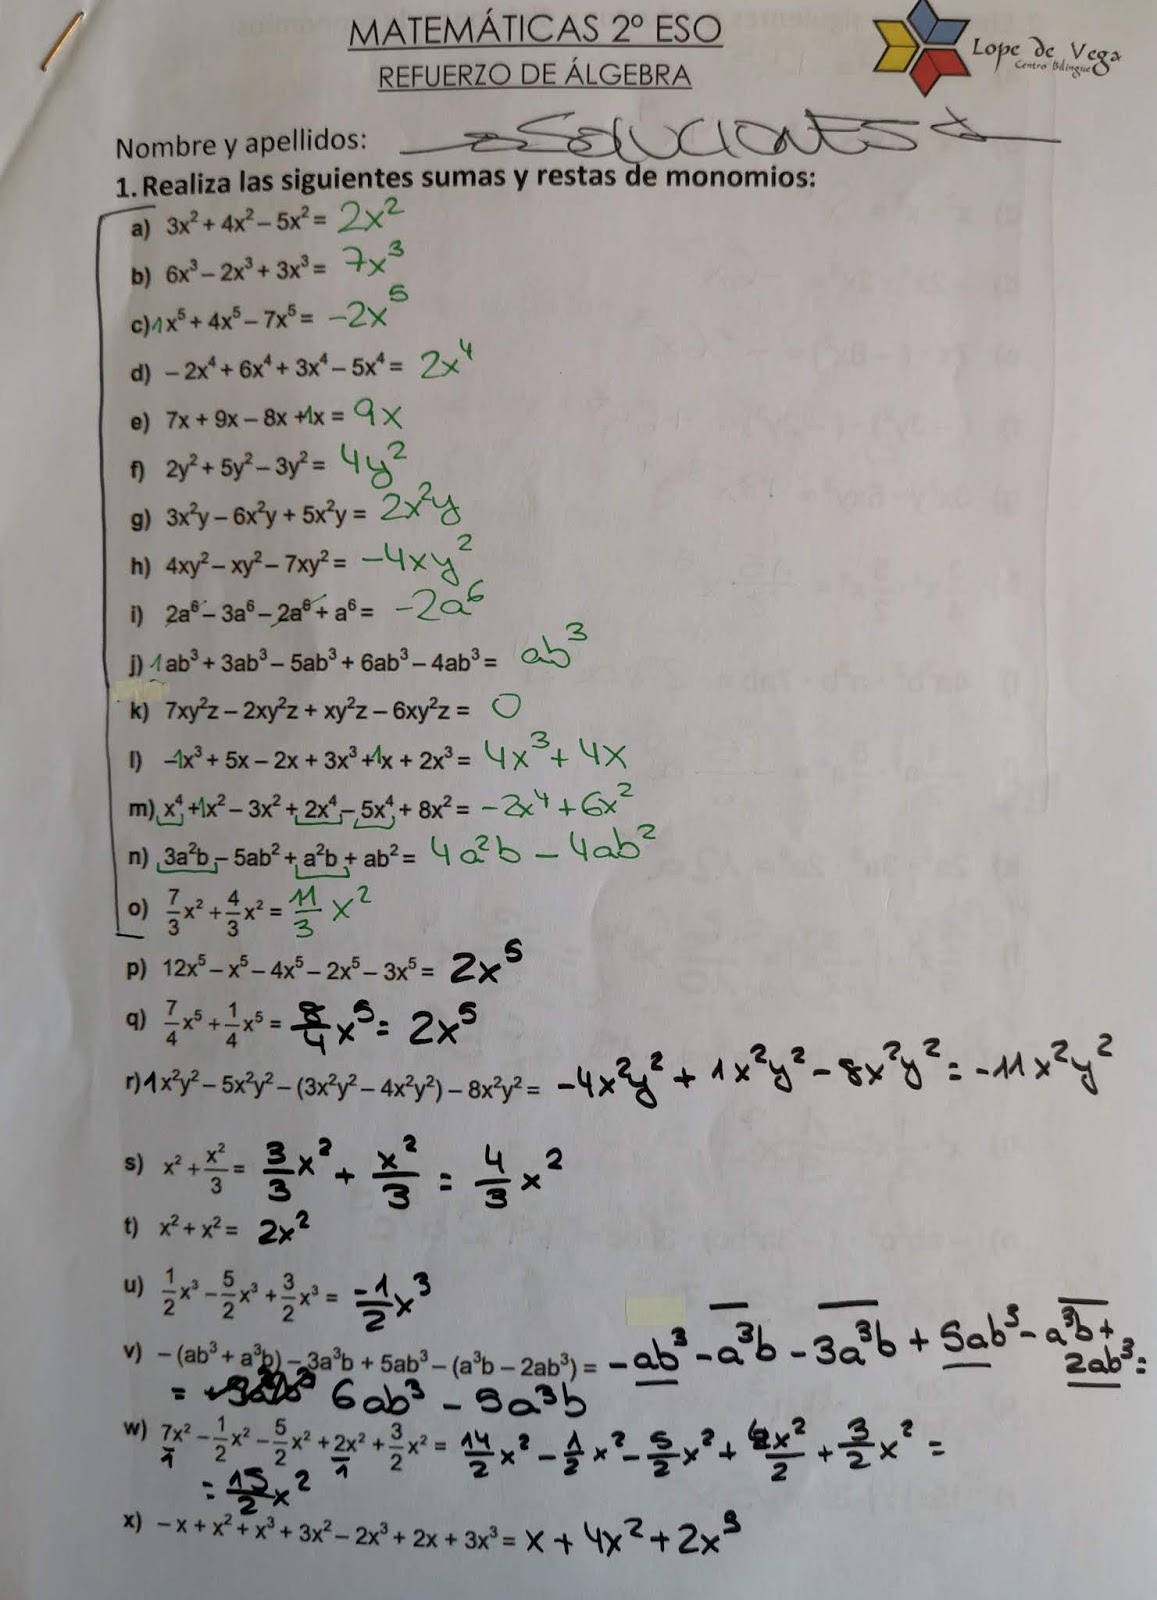 MATEMÁTICAS 2º ESO
REFUERZO DE ÁLGEBRA
Lope de Vega
Centro Bilingüe
Nombre y apellidos: SOLUCIONES
1. Realiza las siguientes sumas y restas de monomios:
a) 3x² + 4x² – 5x² = 2x²
b) 6x³ – 2x³ + 3x³ = 7x³
c) 1x⁵ + 4x⁵ – 7x⁵ = -2x⁵
d) – 2x⁴ + 6x⁴ + 3x⁴ – 5x⁴ = 2x⁴
e) 7x + 9x – 8x + 1x = 9x
f) 2y² + 5y² – 3y² = 4y²
g) 3x²y – 6x²y + 5x²y = 2x²y
h) 4xy² – xy² – 7xy² = -4xy²
i) 2a⁶ – 3a⁶ – 2a⁶ + a⁶ = -2a⁶
j) 1ab³ + 3ab³ – 5ab³ + 6ab³ – 4ab³ = ab³
k) 7xy²z – 2xy²z + xy²z – 6xy²z = 0
l) –1x³ + 5x – 2x + 3x³ + 1x + 2x³ = 4x³ + 4x
m) x⁴ + 1x² – 3x² + 2x⁴ – 5x⁴ + 8x² = -2x⁴ + 6x²
n) 3a²b – 5ab² + a²b + ab² = 4a²b - 4ab²
o) 7/3 x² + 4/3 x² = 11/3 x²
p) 12x⁵ – x⁵ – 4x⁵ – 2x⁵ – 3x⁵ = 2x⁵
q) 7/4 x⁵ + 1/4 x⁵ = 8/4 x⁵ = 2x⁵
r) 1x²y² – 5x²y² – (3x²y² – 4x²y²) – 8x²y² = -4x²y² + 1x²y² - 8x²y² = -11x²y²
s) x² + x²/3 = 3/3 x² + x²/3 = 4/3 x²
t) x² + x² = 2x²
u) 1/2 x³ – 5/2 x³ + 3/2 x³ = -1/2 x³
v) – (ab³ + a³b) – 3a³b + 5ab³ – (a³b – 2ab³) = -ab³ - a³b - 3a³b + 5ab³ - a³b +
2ab³ =
= 6ab³ - 5a³b
w) 7x²/1 – 1/2 x² – 5/2 x² + 2x²/1 + 3/2 x² = 14/2 x² - 1/2 x² - 5/2 x² + 4x²/2 + 3/2 x² =
= 15/2 x²
x) – x + x² + x³ + 3x² – 2x³ + 2x + 3x³ = x + 4x² + 2x³